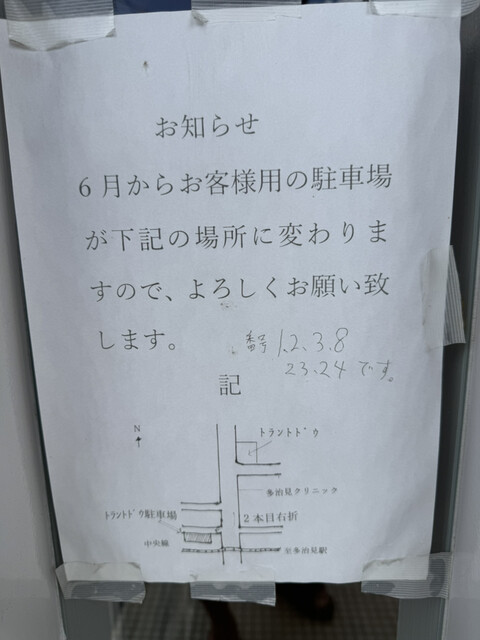 お知らせ
6月からお客様用の駐車場
が下記の場所に変わりま
すので、よろしくお願い致
します。
番号 1.2.3.8
23.24です。
記
N
トラントドウ
多治見クリニック
トラントドウ駐車場
2本目右折
中央線
至多治見駅